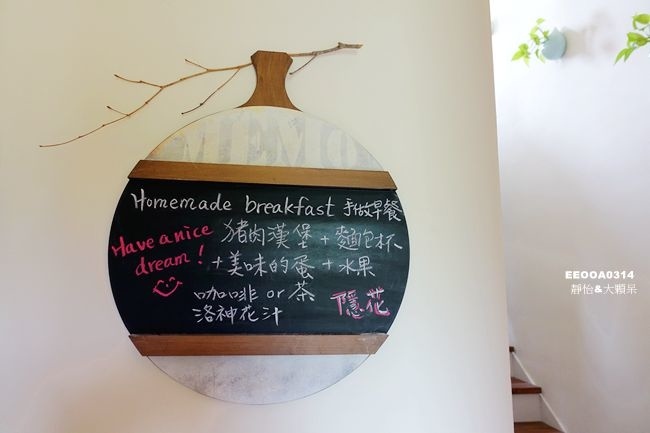 MEMO
Homemade breakfast 手做早餐
Have a nice
dream!
豬肉漢堡+麵包杯
+美味的蛋+水果
咖啡 or 茶
洛神花汁
隱花
EEOOA0314
靜怡&大顆呆